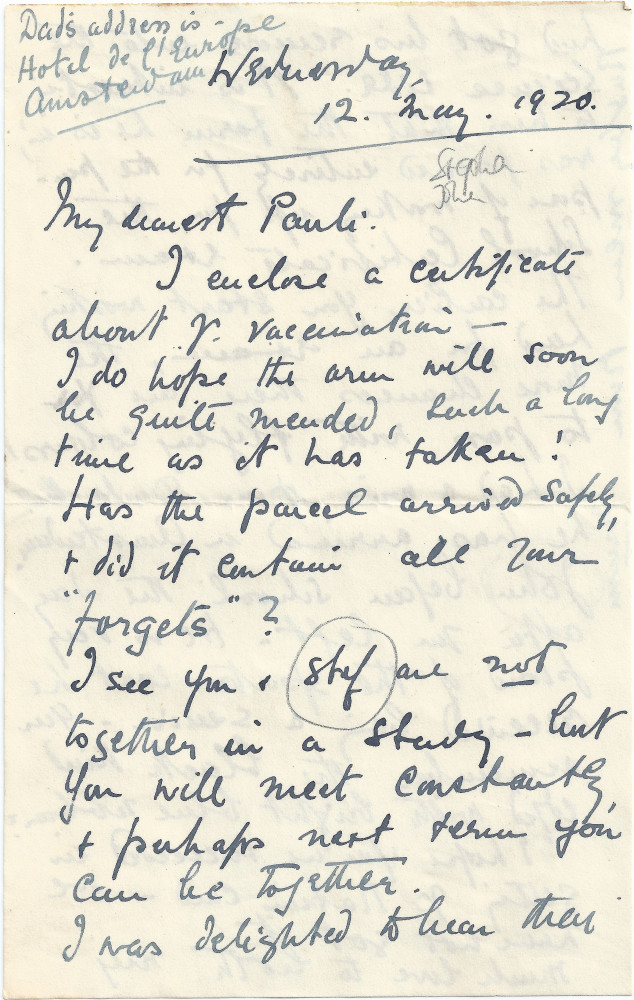 Dad's address is -
Hotel de l'Europe
Amsterdam
Wednesday,
12. May. 1920.
Stephen
John
My dearest Paul.
I enclose a certificate
about yr. vaccination —
I do hope the arm will soon
be quite mended, such a long
time as it has taken!
Has the parcel arrived safely,
+ did it contain all your
"forgets"?
I see you & Stef are not
together in a study - but
you will meet constantly,
+ perhaps next term you
can be together.
I was delighted to hear that